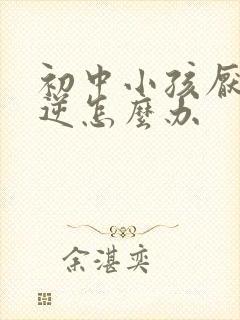 初中小孩厌
逆怎麼办
余湛奕